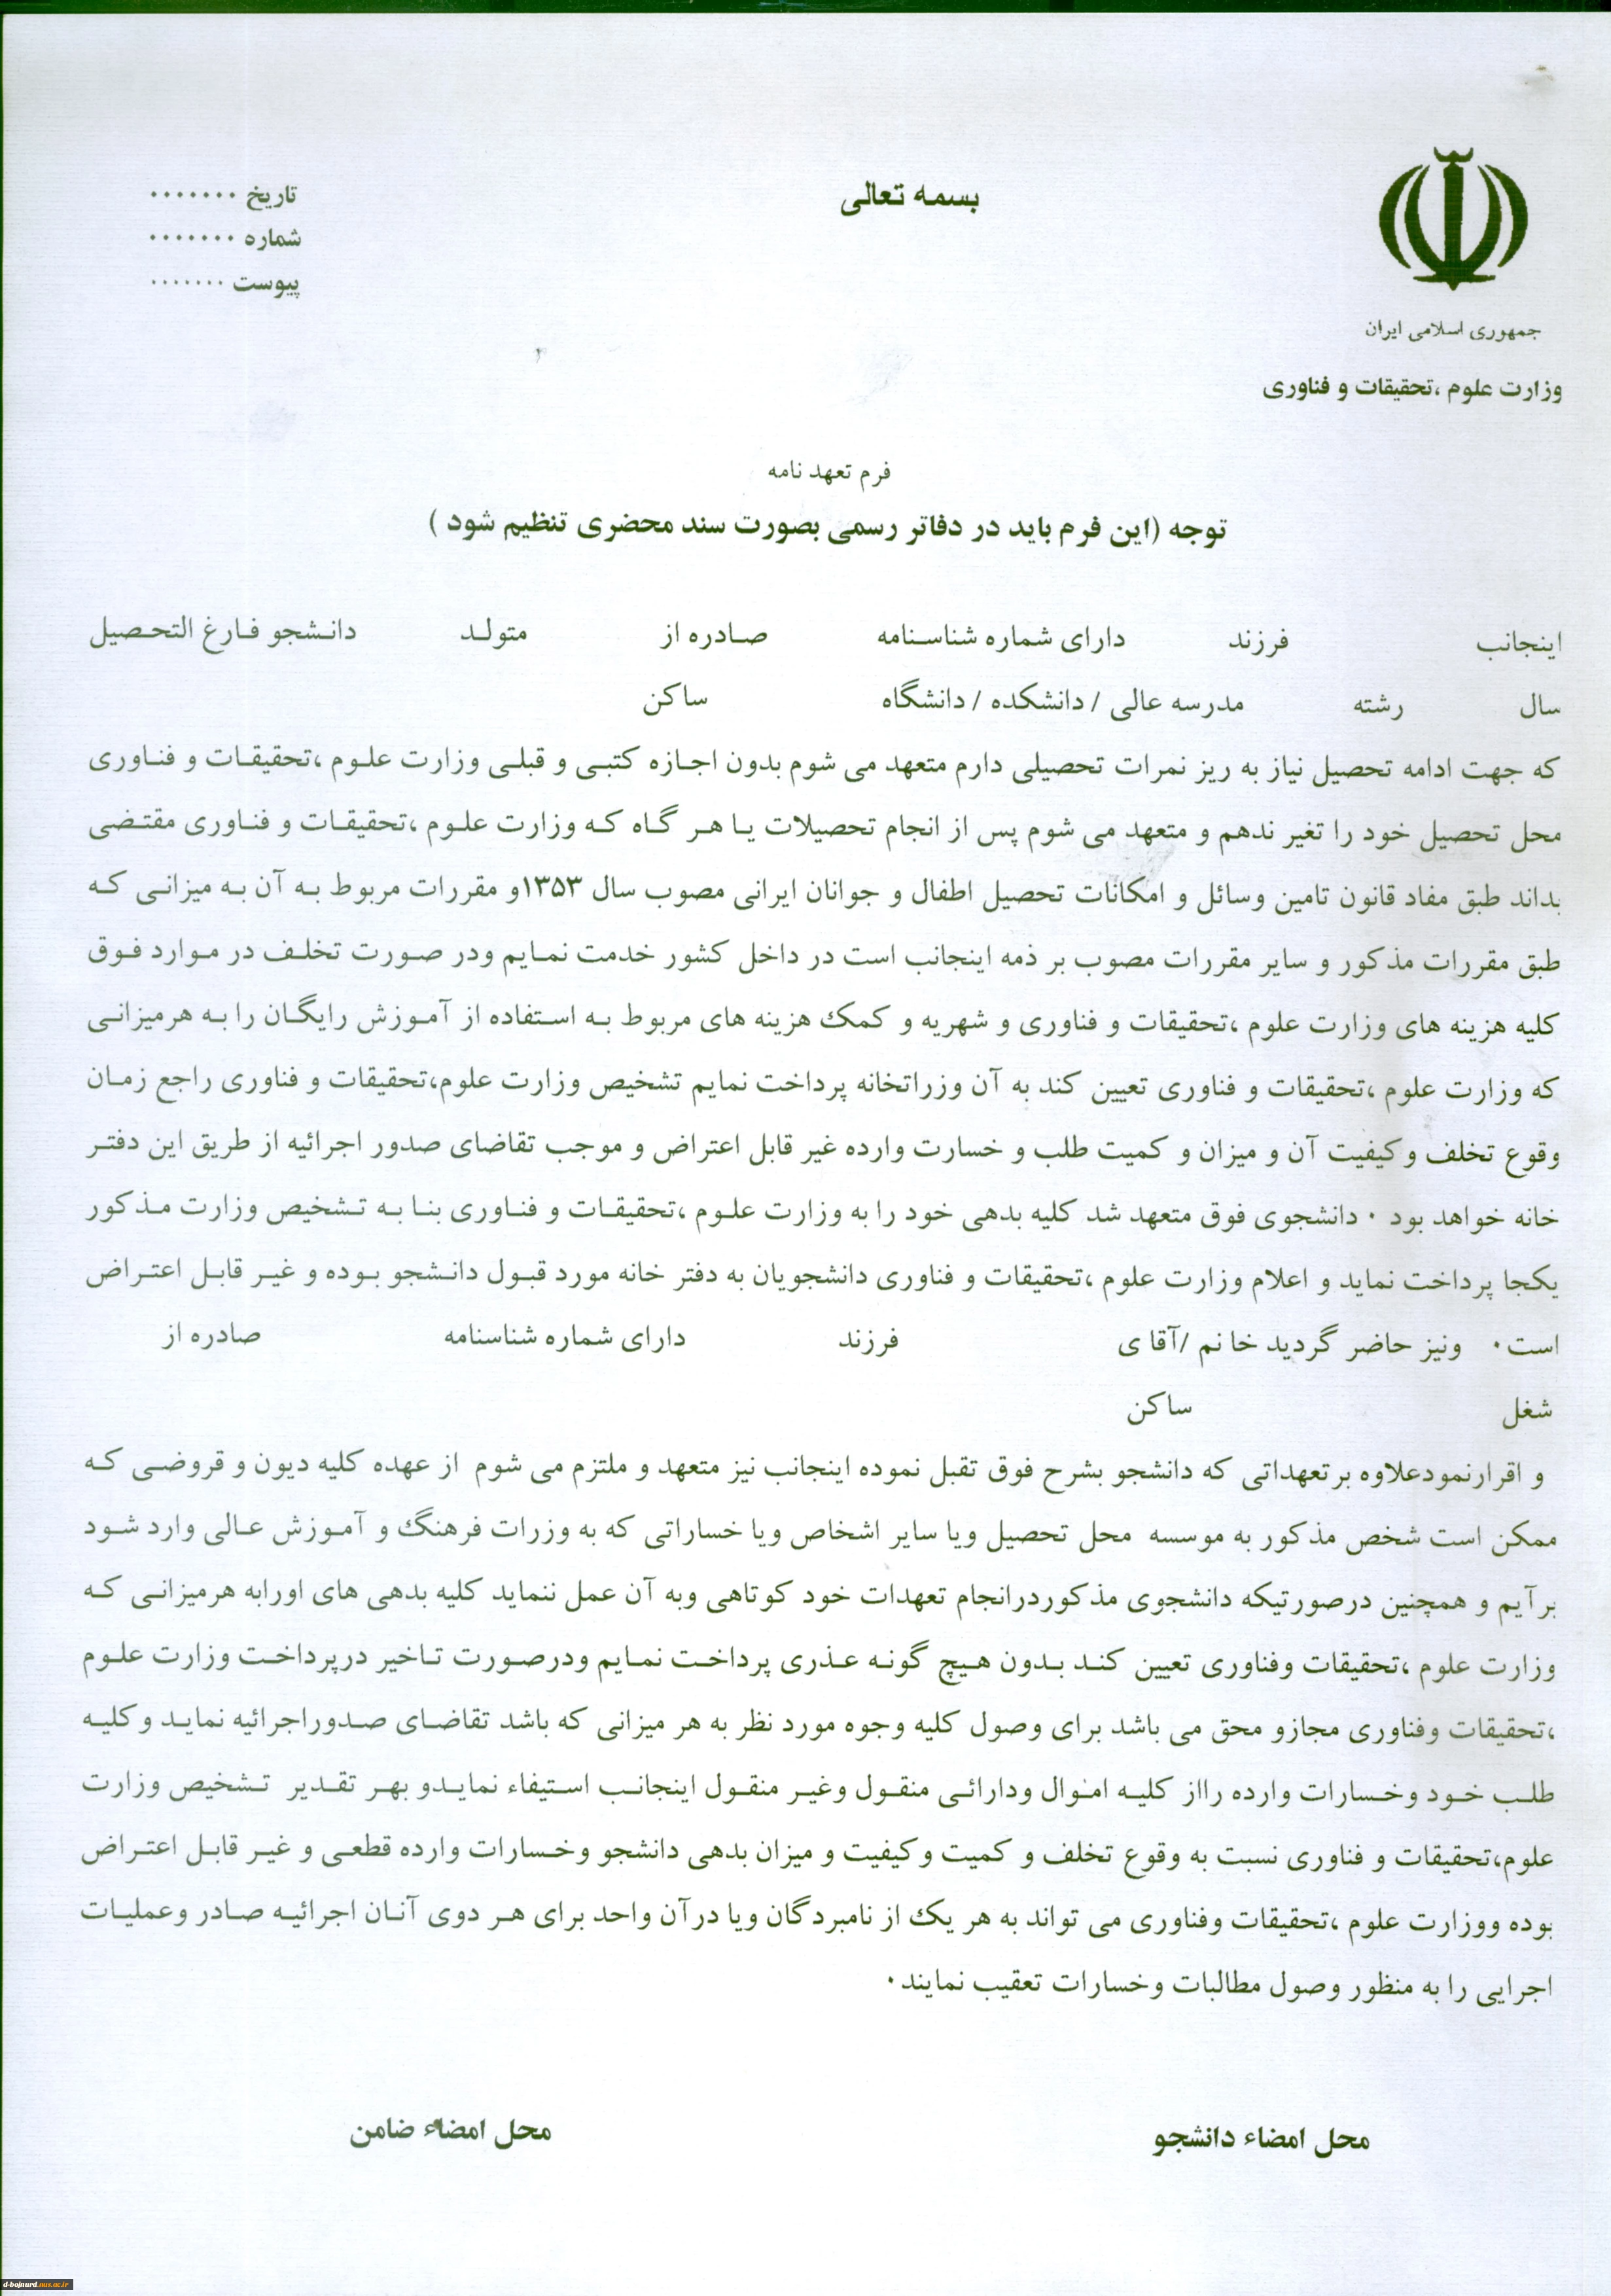 بسمه تعالی
تاریخ ۰۰۰۰۰۰۰
شماره ۰۰۰۰۰۰۰
پیوست ۰۰۰۰۰۰۰
جمهوری اسلامی ایران
وزارت علوم ،تحقیقات و فناوری
فرم تعهد نامه
توجه (این فرم باید در دفاتر رسمی بصورت سند محضری تنظیم شود )
اینجانب فرزند دارای شماره شناسنامه صادره از متولد دانشجو فارغ التحصیل
سال رشته مدرسه عالی / دانشکده / دانشگاه ساکن
که جهت ادامه تحصیل نیاز به ریز نمرات تحصیلی دارم متعهد می شوم بدون اجازه کتبی و قبلی وزارت علوم ،تحقیقات و فناوری
محل تحصیل خود را تغیر ندهم و متعهد می شوم پس از انجام تحصیلات یا هر گاه که وزارت علوم ،تحقیقات و فناوری مقتضی
بداند طبق مفاد قانون تامین وسائل و امکانات تحصیل اطفال و جوانان ایرانی مصوب سال ۱۳۵۳و مقررات مربوط به آن به میزانی که
طبق مقررات مذکور و سایر مقررات مصوب بر ذمه اینجانب است در داخل کشور خدمت نمایم ودر صورت تخلف در موارد فوق
کلیه هزینه های وزارت علوم ،تحقیقات و فناوری و شهریه و کمک هزینه های مربوط به استفاده از آموزش رایگان را به هرمیزانی
که وزارت علوم ،تحقیقات و فناوری تعیین کند به آن وزراتخانه پرداخت نمایم تشخیص وزارت علوم،تحقیقات و فناوری راجع زمان
وقوع تخلف وکیفیت آن و میزان و کمیت طلب و خسارت وارده غیر قابل اعتراض و موجب تقاضای صدور اجرائیه از طریق این دفتر
خانه خواهد بود ۰ دانشجوی فوق متعهد شد کلیه بدهی خود را به وزارت علوم ،تحقیقات و فناوری بنا به تشخیص وزارت مذکور
یکجا پرداخت نماید و اعلام وزارت علوم ،تحقیقات و فناوری دانشجویان به دفتر خانه مورد قبول دانشجو بوده و غیر قابل اعتراض
است۰ ونیز حاضر گردید خانم /آقای فرزند دارای شماره شناسنامه صادره از
شغل ساکن
و اقرارنمودعلاوه برتعهداتی که دانشجو بشرح فوق تقبل نموده اینجانب نیز متعهد و ملتزم می شوم از عهده کلیه دیون و قروضی که
ممکن است شخص مذکور به موسسه محل تحصیل ویا سایر اشخاص ویا خساراتی که به وزرات فرهنگ و آموزش عالی وارد شود
برآیم و همچنین درصورتیکه دانشجوی مذکوردرانجام تعهدات خود کوتاهی وبه آن عمل ننماید کلیه بدهی های اورابه هرمیزانی که
وزارت علوم ،تحقیقات وفناوری تعیین کند بدون هیچ گونه عذری پرداخت نمایم ودرصورت تاخیر درپرداخت وزارت علوم
،تحقیقات وفناوری مجازو محق می باشد برای وصول کلیه وجوه مورد نظر به هر میزانی که باشد تقاضای صدوراجرائیه نماید وکلیه
طلب خود وخسارات وارده رااز کلیه اموال ودارائی منقول وغیر منقول اینجانب استیفاء نمایدو بهر تقدیر تشخیص وزارت
علوم،تحقیقات و فناوری نسبت به وقوع تخلف و کمیت وکیفیت و میزان بدهی دانشجو وخسارات وارده قطعی و غیر قابل اعتراض
بوده ووزارت علوم ،تحقیقات وفناوری می تواند به هر یک از نامبردگان ویا درآن واحد برای هر دوی آنان اجرائیه صادر وعملیات
اجرایی را به منظور وصول مطالبات وخسارات تعقیب نمایند۰
محل امضاء دانشجو
محل امضاء ضامن
d-bojnurd.nus.ac.ir